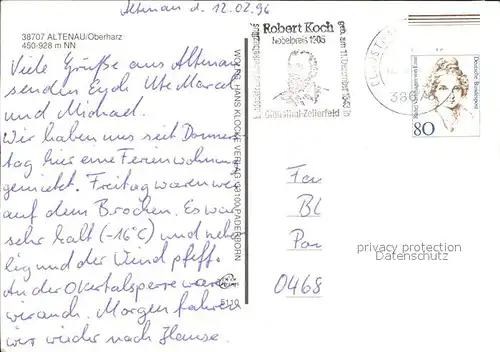 Altenau d. 12.02.96
38707 ALTENAU/Oberharz
450-928 m NN
Viele Grüße aus Altenau
senden Euch Ute Marcel
und Michael.
Wir haben uns seit Donners
tag hier eine Ferienwohnung
gemietet. Freitag waren wir
auf dem Brocken. Es war
sehr kalt (-16°C) und neb-
lig und der Wind pfiff.
An der Okertalsperre waren
wir auch. Morgen fahren
wir wieder nach Hause.
WOLFGANG HANS KLOCKE VERLAG 33100 PADERBORN
5110
Robert Koch
Nobelpreis 1905
geb. am 11. Dezember 1843 in
Clausthal-Zellerfeld
38678
Deutsche Bundespost
80
Fa
BL
Pa
0468
privacy protection
Datenschutz